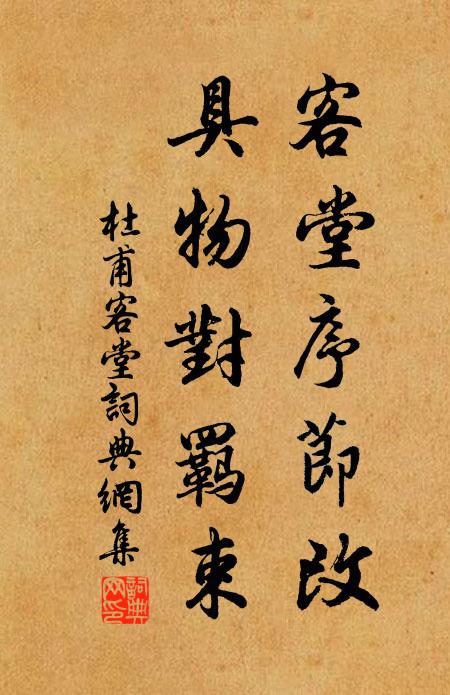 客堂序節改
具物對羈束
杜甫客堂詞典網集
詞典網印